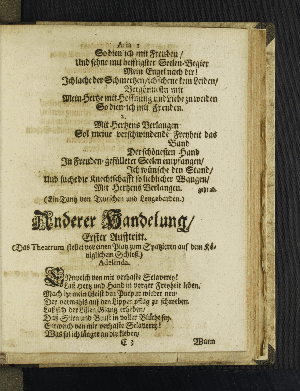 Aria 1
So dien ich mit Freuden/
Und sehne mit hefftigster Seelen-Begier
Mein Engel nach dir!
Ich lache der Schmertzen/ ich scheue kein Leiden/
Vergönnest mir
Mein Hertze mit Hoffnung und Liebe zu weiden
So dien ich mit Freuden.
2.
Mit Hertzens Verlangen
Sol meine verschwindende Freyheit das
Band
Der schönsten Hand
In Freuden-gefüllter Seelen empfangen/
Ich wünsche den Stand/
Und suche die Knechtschafft so lieblicher Wangen/
Mit Hertzens Verlangen. geht ab.
(Ein Tantz von Teutschen und Longobarden.)
Anderer Handelung/
Erster Aufftritt.
(Das Theatrum stellet vor einen Platz zum Spatzieren auf dem Kö-
niglichen Schloß.)
Adelinda.
Entweich von mir verhaste Sclaverey!
Laß Hertz und Hand in voriger Freyheit leben,
Mach hie mein Geist den Purpur wieder neu
Der vormahls auf den Lippen pflag zu schweben.
Laß sich der Lilien Glantz erheben/
Daß Stirn und Brust in voller Blüthe sey.
Entweich von mir verhaste Sclaverey!
Was sol ich länger an dir kleben/
C 3
Wann